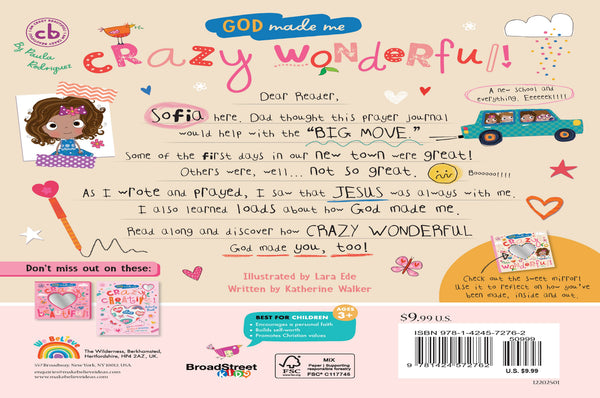 cb
By Paula Rodriguez
GOD made me
CRAZY WONDERFUL!
Dear Reader,
Sofia here. Dad thought this prayer journal
would help with the "BIG MOVE."
Some of the first days in our new town were great!
Others were, well... not so great.
Booooo!!!!
As I wrote and prayed, I saw that JESUS was always with me.
I also learned loads about how God made me.
Read along and discover how CRAZY WONDERFUL
God made you, too!
A new school and
everything. Eeeeeek!!!!
Illustrated by Lara Ede
Written by Katherine Walker
Check out the sweet mirror!
Use it to reflect on how you've
been made, inside and out.
Don't miss out on these:
We Believe
The Wilderness, Berkhamsted,
Hertfordshire, HP4 2AZ, UK.
557 Broadway, New York, NY 10012, USA.
enquiries@makebelieveideas.com
www.makebelieveideas.com
BEST FOR CHILDREN
AGES 3+
• Encourages a personal faith
• Builds self-worth
• Promotes Christian values
BroadStreet
kids
FSC
www.fsc.org
MIX
Paper | Supporting
responsible forestry
FSC® C117745
$9.99 U.S.
ISBN 978-1-4245-7276-2
50999
9 781424 572762
U.S. $9.99
12202501